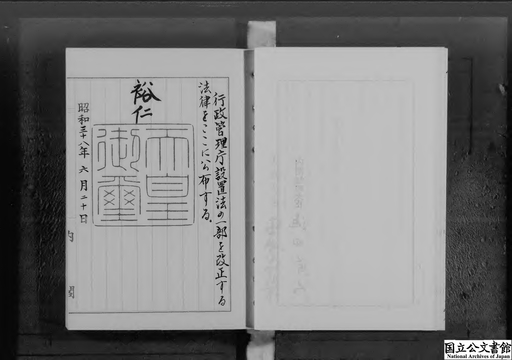 行政管理庁設置法の一部を改正する
法律をここに公布する。
裕仁
天皇
御璽
昭和三十八年六月二十日
内閣
国立公文書館
National Archives of Japan